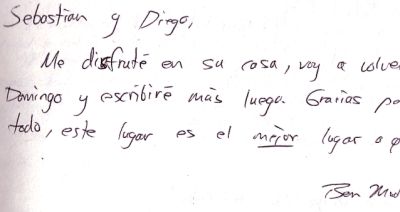 Sebastian y Diego,
Me disfruté en su casa, voy a
Domingo y escribiré más luego. Gracias
todo, este lugar es el mejor lugar a
Ben